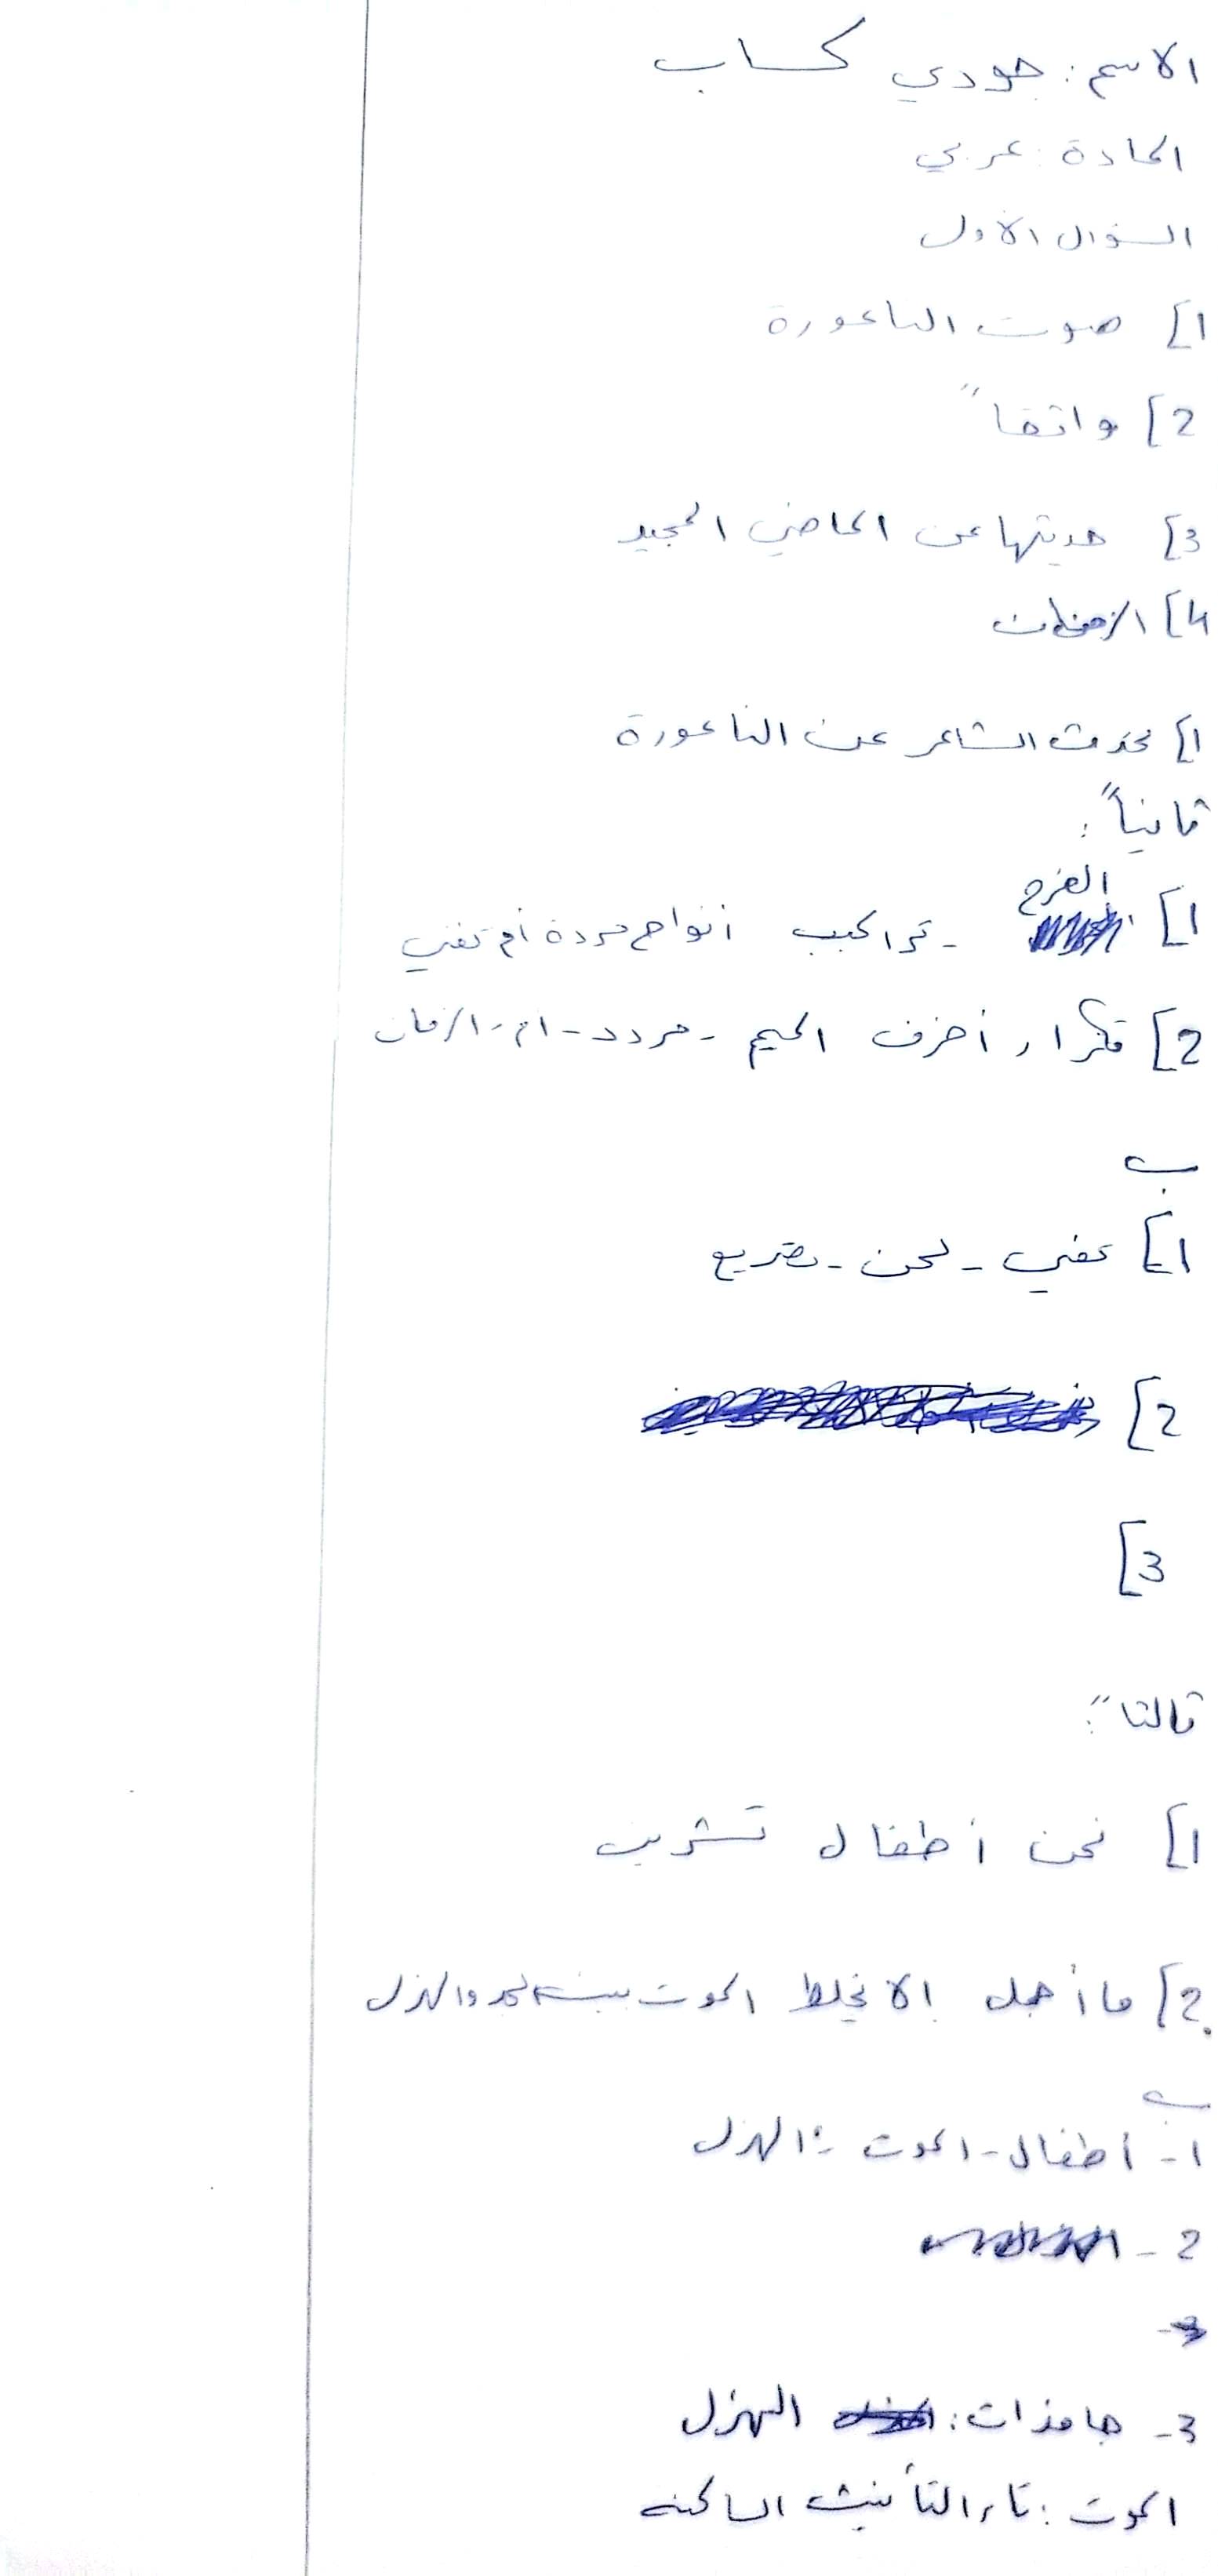 الاسم: جودي كساب
المادة: عربي
السؤال الأول
1] صوت الناعورة
2] واثقا"
3] حديثها عن الماضي المجيد
4]
1] تحدث الشاعر عن الناعورة
ثانياً:
1] الفرح - تراكيب أنواح مرددة أم تغني
2] تكرار أحرف الميم - مردد - ام - الزمان
ب
1] تغني - لحن -
2]
3]
ثالثا":
1] نحن أطفال تشرين
2] ما أجمل الا نخلط الموت بين الجد والهزل
ب
1- أطفال - الموت - الهزل
2-
3-
3- جامدات: الهزل
الموت: تاء التأنيث الساكنه